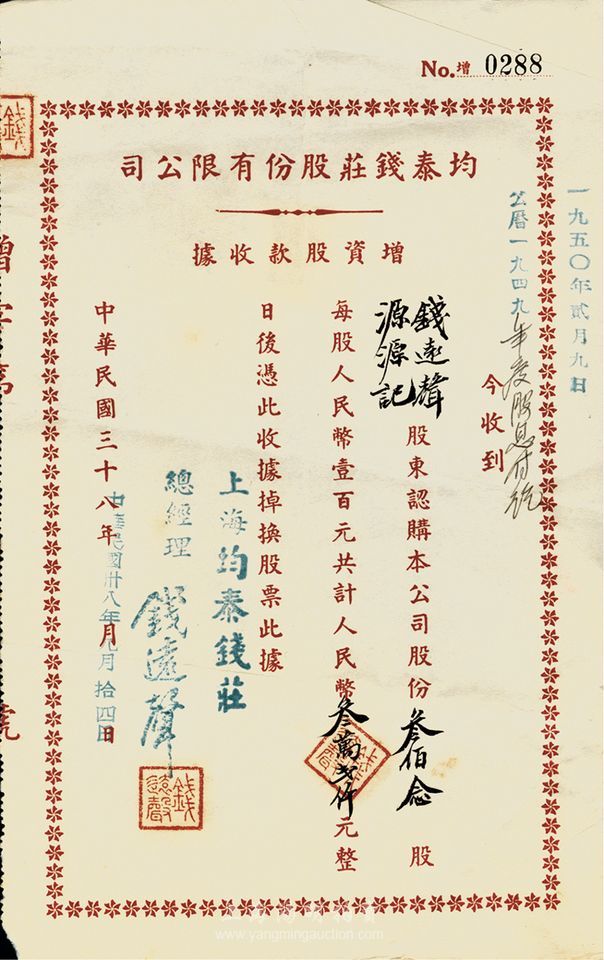 No. 增 0288
均泰錢莊股份有限公司
增資股款收據
一九五〇年貳月九日
公曆一九四九年度股息付訖
今收到
錢遠聲
源源記
股東認購本公司股份叁佰念股
每股人民幣壹百元共計人民幣叁萬貳仟元整
日後憑此收據掉換股票此據
上海均泰錢莊
總經理 錢遠聲
錢遠聲
中華民國三十八年 月 日
中華民國卅八年 月拾四日
www.yangmingauction.com